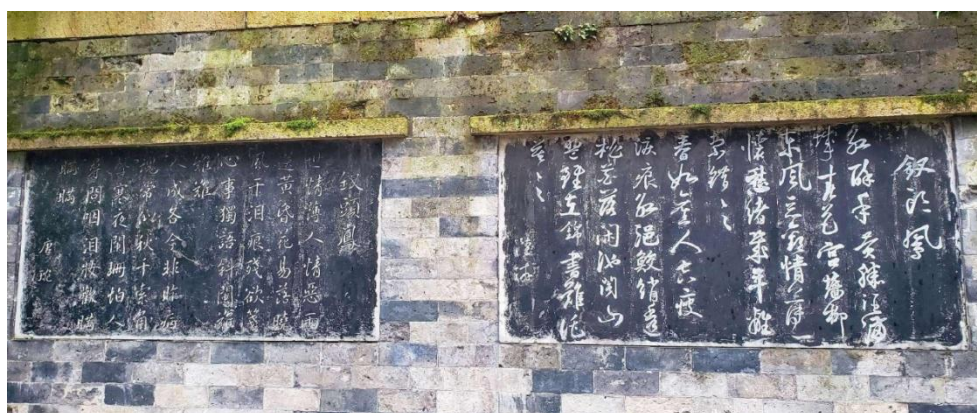 釵頭鳳
紅酥手黃縢酒滿
城春色宮墻柳
東風惡歡情薄一
懷愁緒幾年離
索錯〻〻
春如舊人空瘦
淚痕紅浥鮫綃透
桃花落閑池閣山
盟雖在錦書難托
莫〻〻
陸游
釵頭鳳
世情薄人情惡雨
送黃昏花易落曉
風干淚痕殘欲箋
心事獨語斜闌難
難難
人成各今非昨病
魂常似秋千索角
聲寒夜闌珊怕人
尋問咽淚妝歡瞞
瞞瞞
唐琬